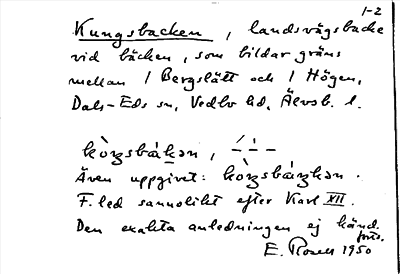 1-2
Kungsbacken, landsvägsbacke
vid bäcken, som bildar gräns
mellan 1 Bergslätt och 1 Högen,
Dals-Eds sn, Vedbo hd, Älvsb. l.
Även uppgivet:
F. led sannolikt efter Karl XII.
Den exakta anledningen ej känd.
forts.
E. Rosell 1950